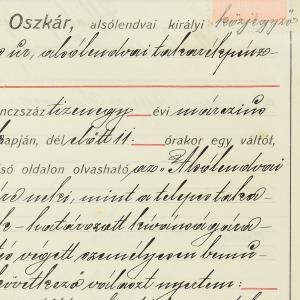 Oszkár, alsólendvai királyi közjegyző
úr, alsólendvai takarékpénz-
nczszáz tizenegy évi márczius
napján, dél előtt 11. órakor egy váltót,
só oldalon olvasható az "Alsólendvai
neki, mint a telepes taka-
k - határozott kívánságára
végett személyesen bemu-
következő választ nyertem: